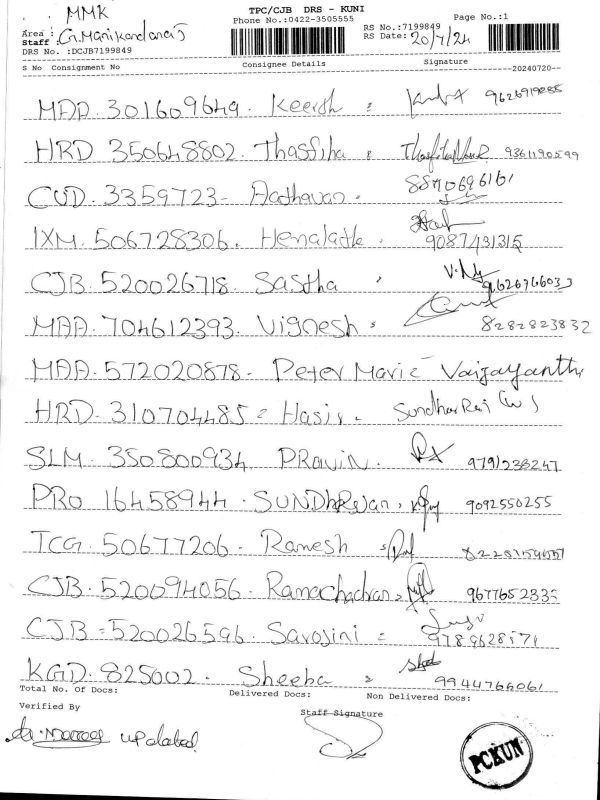 MMK
TPC/CJB DRS - KUNI
Phone No.:0422-3505555 Page No.:1
Area :
Staff : G.Manikandaraj
RS No.:7199849
RS Date: 20/7/24
DRS No. :DCJB7199849
S No Consignment No Consignee Details Signature
--20240720--
MAA. 301609649. Keersh 9626919885
HRD 350648802. Thasfiha 9361190599
CUD. 3359723- Aadhavan. 8870696161
IXM. 506728306. Hemalatha 9087431315
CJB. 520026718. Sastha 9626766033
MAA. 704612393. Vignesh 8282823832
MAA. 572020878- Peter Marie Vaijayanthi
HRD. 310704485 Hasir SundharRaj (W)
SLM. 350800934 PRaviN. 9791238247
PRO 16458944. SUNDhRajan, 9092550255
TCG. 50677206- Ramesh
CJB. 520094056. Ramachadran 9677652335
CJB - 520026596. Sarojini
KGD. 825002. Sheeba 9944766061
Total No. Of Docs: Delivered Docs: Non Delivered Docs:
Verified By
Staff Signature
updated
PCKUN